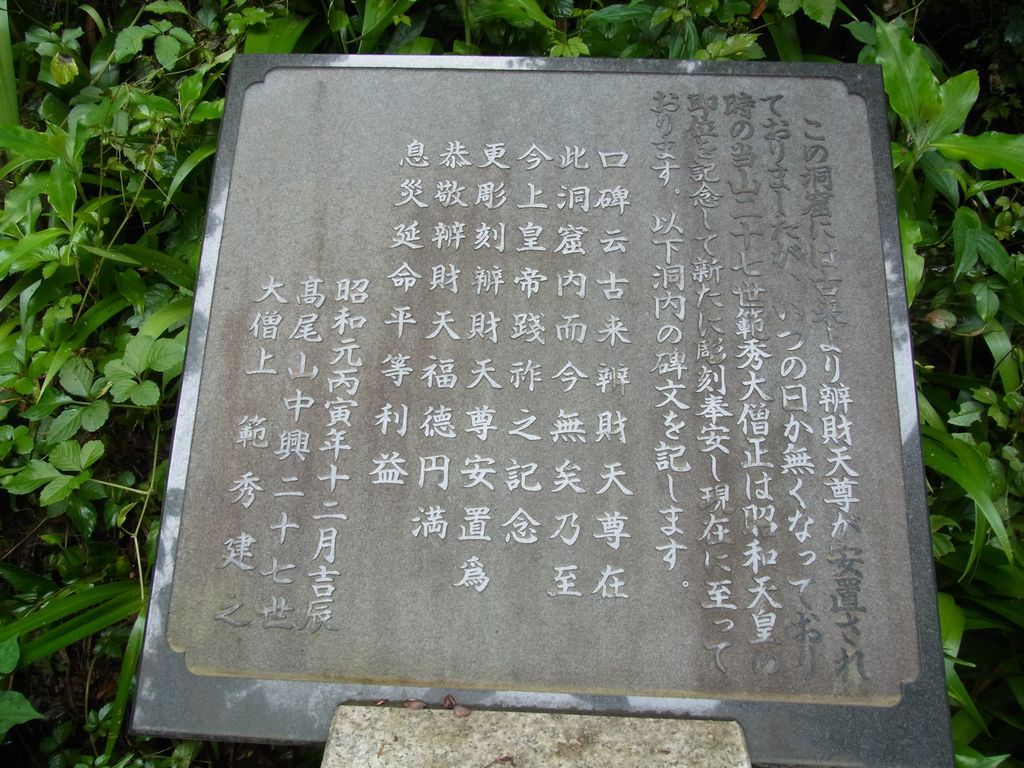 この洞窟には古来より辨財天尊が安置され
ておりましたが、いつの日か無くなっており
時の当山二十七世範秀大僧正は昭和天皇の
即位を記念して新たに彫刻奉安し現在に至って
おります。以下洞内の碑文を記します。
口碑云古来辨財天尊在
此洞窟内而今無矣乃至
今上皇帝踐祚之記念
更彫刻辨財天尊安置爲
恭敬辨財天福德円満
息災延命平等利益
昭和元丙寅年十二月吉辰
髙尾山中興二十七世
大僧上 範秀建之